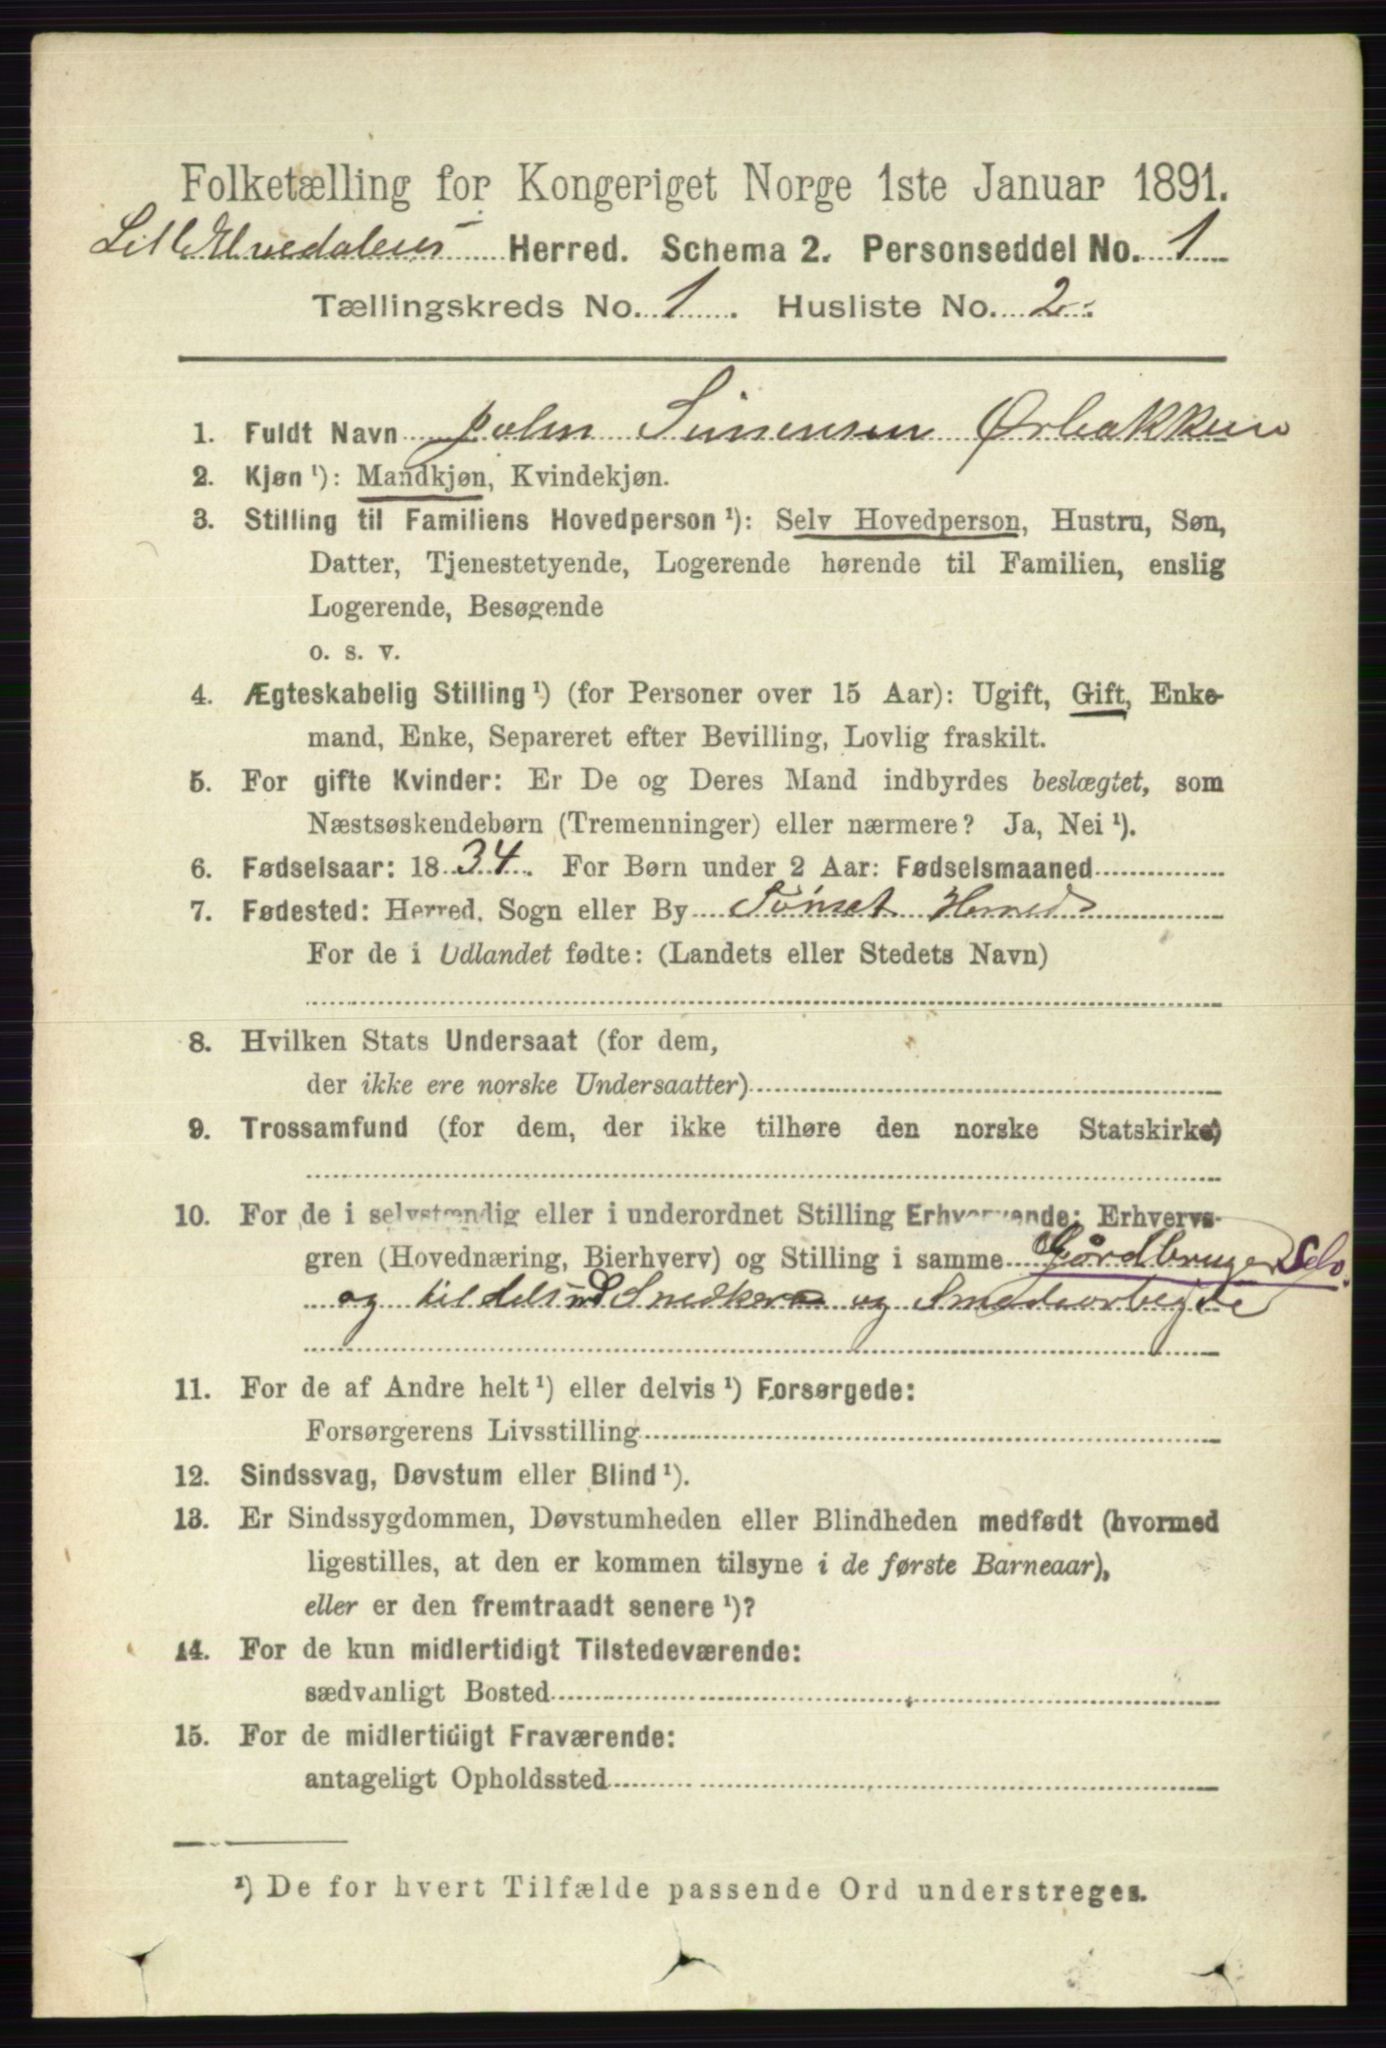 Folketælling for Kongeriget Norge 1ste Januar 1891.
Lille Elvedalens Herred. Schema 2. Personseddel No. 1
Tællingskreds No. 1. Husliste No. 2
1. Fuldt Navn John Simensen Ørbakken
2. Kjøn ¹): Mandkjøn, Kvindekjøn.
3. Stilling til Familiens Hovedperson ¹): Selv Hovedperson, Hustru, Søn,
Datter, Tjenestetyende, Logerende hørende til Familien, enslig
Logerende, Besøgende
o. s. v.
4. Ægteskabelig Stilling ¹) (for Personer over 15 Aar): Ugift, Gift, Enke-
mand, Enke, Separeret efter Bevilling, Lovlig fraskilt.
5. For gifte Kvinder: Er De og Deres Mand indbyrdes beslægtet, som
Næstsøskendebørn (Tremenninger) eller nærmere? Ja, Nei ¹).
6. Fødselsaar: 1834. For Børn under 2 Aar: Fødselsmaaned
7. Fødested: Herred, Sogn eller By Tönset Herred
For de i Udlandet fødte: (Landets eller Stedets Navn)
8. Hvilken Stats Undersaat (for dem,
der ikke ere norske Undersaatter)
9. Trossamfund (for dem, der ikke tilhøre den norske Statskirke)
10. For de i selvstændig eller i underordnet Stilling Erhvervende: Erhvervs-
gren (Hovednæring, Bierhverv) og Stilling i samme Gårdbruger Selv.
og tildels Snedker og Smedearbeide
11. For de af Andre helt ¹) eller delvis ¹) Forsørgede:
Forsørgerens Livsstilling
12. Sindssvag, Døvstum eller Blind ¹).
13. Er Sindssygdommen, Døvstumheden eller Blindheden medfødt (hvormed
ligestilles, at den er kommen tilsyne i de første Barneaar),
eller er den fremtraadt senere ¹)?
14. For de kun midlertidigt Tilstedeværende:
sædvanligt Bosted
15. For de midlertidigt Fraværende:
antageligt Opholdssted
¹) De for hvert Tilfælde passende Ord understreges.